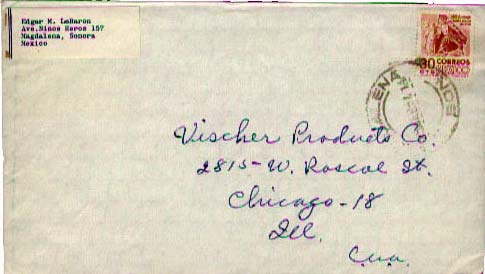 Edgar M. LeBaron
Ave.Ninos Eeros 157
Magdalena, Sonora
Mexico
30 CORREOS
CTS
Vischer Products Co.
2815-W. Roscoe St.
Chicago-18
Ill.